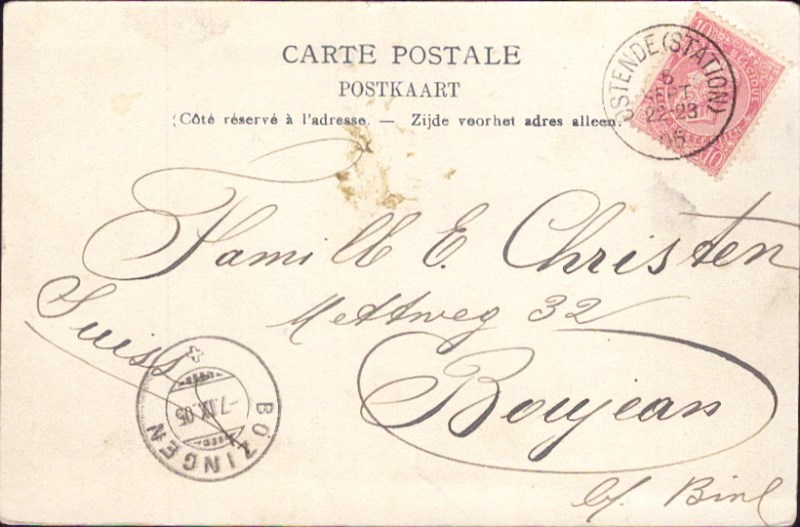 CARTE POSTALE
POSTKAART
(Côté réservé à l'adresse. — Zijde voorhet adres alleen.
OSTENDE (STATION)
22-23
10
10
Famille E. Christen
Mettweg 32
Boujean
b/. Biel
Suisse
BÖZINGEN
-7.IX.05